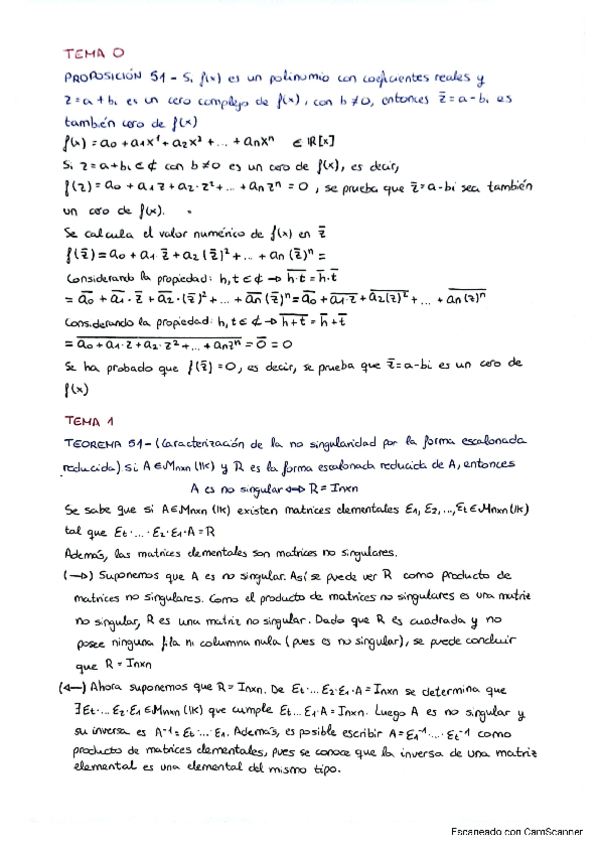 TEMA 0
PROPOSICIÓN 51 - Si f(x) es un polinomio con coeficientes reales y
z = a + bi es un cero complejo de f(x), con b ≠ 0, entonces z̄ = a - bi es
también cero de f(x)
f(x) = a₀ + a₁x¹ + a₂x² + ... + aₙxⁿ ∈ ℝ[x]
Si z = a + bi ∈ ₵ con b ≠ 0 es un cero de f(x), es decir,
f(z) = a₀ + a₁z + a₂·z² + ... + aₙzⁿ = 0, se prueba que z̄ = a - bi sea también
un cero de f(x).
Se calcula el valor numérico de f(x) en z̄
f(z̄) = a₀ + a₁·z̄ + a₂(z̄)² + ... + aₙ(z̄)ⁿ =
Considerando la propiedad: h, t ∈ ₵ → \overline{h·t} = h̄·t̄
= \overline{a₀} + \overline{a₁}·z̄ + \overline{a₂}·(z̄)² + ... + \overline{aₙ}(z̄)ⁿ = \overline{a₀} + \overline{a₁·z} + \overline{a₂(z)²} + ... + \overline{aₙ(z)ⁿ}
Considerando la propiedad: h, t ∈ ₵ → \overline{h+t} = h̄ + t̄
= \overline{a₀ + a₁·z + a₂·z² + ... + aₙzⁿ} = \overline{0} = 0
Se ha probado que f(z̄) = 0, es decir, se prueba que z̄ = a - bi es un cero de
f(x)
TEMA 1
TEOREMA 51 - (Caracterización de la no singularidad por la forma escalonada
reducida) Si A ∈ Mₙₓₙ(𝕂) y R es la forma escalonada reducida de A, entonces
A es no singular ↔ R = Iₙₓₙ
Se sabe que si A ∈ Mₙₓₙ(𝕂) existen matrices elementales E₁, E₂, ..., Eₜ ∈ Mₙₓₙ(𝕂)
tal que Eₜ·...·E₂·E₁·A = R
Además, las matrices elementales son matrices no singulares.
(→) Suponemos que A es no singular. Así se puede ver R como producto de
matrices no singulares. Como el producto de matrices no singulares es una matriz
no singular, R es una matriz no singular. Dado que R es cuadrada y no
posee ninguna fila ni columna nula (pues es no singular), se puede concluir
que R = Iₙₓₙ
(←) Ahora suponemos que R = Iₙₓₙ. De Eₜ·...E₂·E₁·A = Iₙₓₙ se determina que
∃Eₜ·...E₂·E₁ ∈ Mₙₓₙ(𝕂) que cumple Eₜ...E₁·A = Iₙₓₙ. Luego A es no singular y
su inversa es A⁻¹ = Eₜ·...E₁. Además, es posible escribir A = E₁⁻¹·...·Eₜ⁻¹ como
producto de matrices elementales, pues se conoce que la inversa de una matriz
elemental es una elemental del mismo tipo.
Escaneado con CamScanner